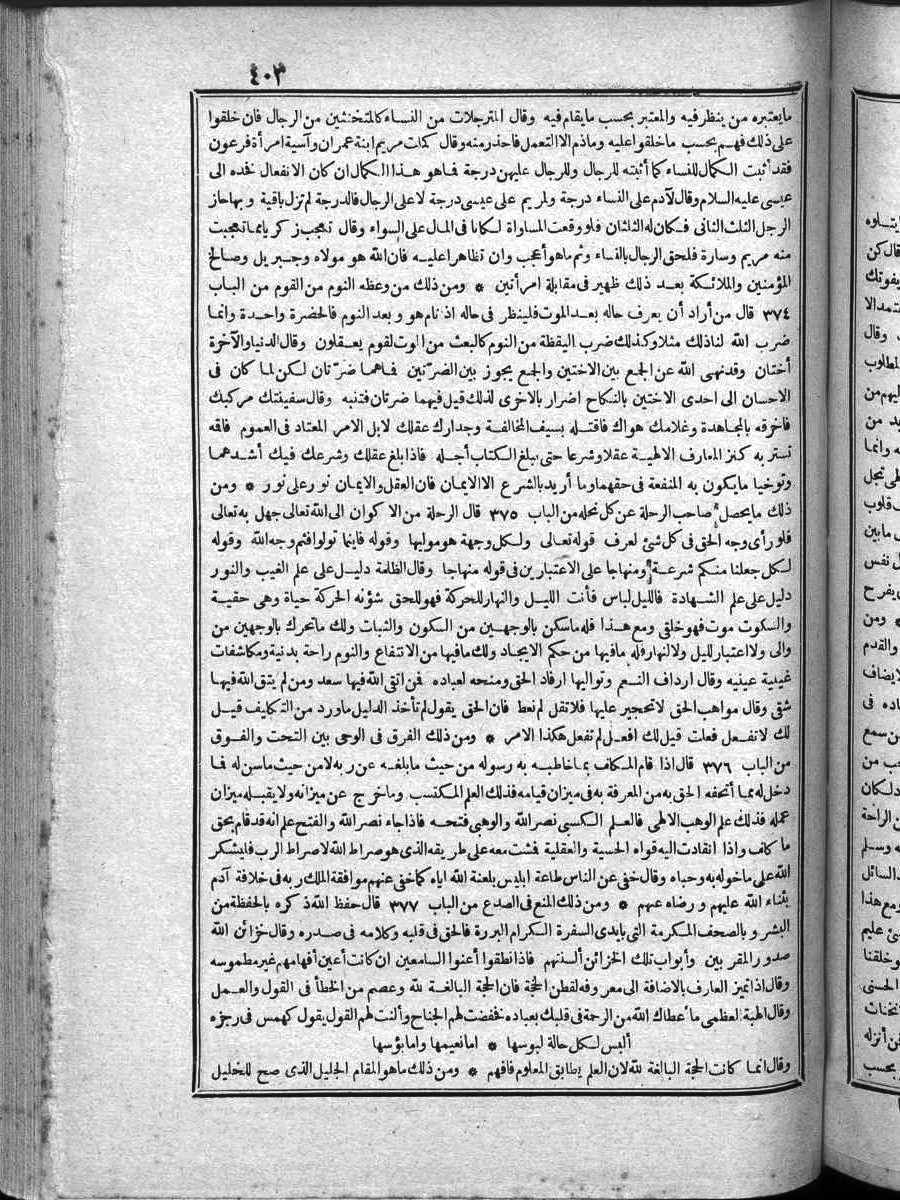 ٤٠٣
مايعتبره من ينظر فيه والمعتبر بحسب مايقام فيه وقال المترجلات من النساء كالمتخنثين من الرجال فان خلقوا
على ذلك فهم بحسب ماخلقوا عليه وماذم الا التعمل فاحذر منه وقال كملت مريم ابنة عمران وآسية امرأة فرعون
فقد أثبت الكمال للنساء كما أثبته للرجال وللرجال عليهن درجة فماهو هذا الكمال ان كان الانفعال فخده الى
عيسى عليه السلام وقال لآدم على النساء درجة ولمريم على عيسى درجة لا على الرجال فالدرجة لم تزل باقية وبها حاز
الرجل الثلث الثانى فكان له الثلثان فلو وقعت المساواة لكانا فى المال على السواء وقال تعجب زكريا مما تعجبت
منه مريم وسارة فلحق الرجال بالنساء وثم ماهو أعجب وان تظاهرا عليه فان الله هو مولاه وجبريل وصالح
المؤمنين والملائكة بعد ذلك ظهير فى مقابلة امرأتين * ومن ذلك من وعظه النوم من القوم من الباب
٣٧٤ قال من أراد أن يعرف حاله بعد الموت فلينظر فى حاله اذ نام هو وبعد النوم فالحضرة واحدة وانما
ضرب الله لنا ذلك مثلا وكذلك ضرب اليقظة من النوم كالبعث من الموت لقوم يعقلون وقال الدنيا والآخرة
أختان وقد نهى الله عن الجمع بين الاختين والجمع يجوز بين الضرتين فاهما ضرتان لكن لما كان فى
الاحسان الى احدى الاختين بالنكاح اضرار بالاخرى لذلك قيل فيهما ضرتان فتنبه وقال سفينتك مركبك
فاخرقه بالمجاهدة وغلامك هواك فاقتله بسيف المخالفة وجدارك عقلك لا بل الامر المعتاد فى العموم فاقه
تستر به كنز المعارف الالهية عقلا وشرعا حتى يبلغ الكتاب أجله فاذا بلغ عقلك وشرعك فيك أشدهما
وتوخيا مايكون به المنفعة فى حقهما وما أريد بالشرع الا الايمان فان العقل والايمان نور على نور * ومن
ذلك مايحصل صاحب الرحلة عن كل نحله من الباب ٣٧٥ قال الرحلة من الاكوان الى الله تعالى جهل به تعالى
فلو رأى وجه الحق فى كل شئ لعرف قوله تعالى ولكل وجهة هو موليها وقوله فاينما تولوا فثم وجه الله وقوله
لكل جعلنا منكم شرعة ومنهاجا على الاعتبارين فى قوله منهاجا وقال الظلمة دليل على علم الغيب والنور
دليل على علم الشهادة فالليل لباس فأنت الليل والنهار للحركة فهو للحق شؤنه الحركة حياة وهى حقية
والسكوت موت فهو خلقى ومع هذا فله ماسكن بالوجهين من السكون والثبات ولك ماتحرك بالوجهين من
والى ولا اعتبار لليل ولا لنهار فله مافيها من حكم الايجاد ولك مافيها من الانتفاع والنوم راحة بدنية ومكاشفات
غيبية عينيه وقال ارداف النعم وتواليها ارفاد الحق ومنحه لعباده فمن اتقى الله فيها سعد ومن لم يتق الله فيها
شقى وقال مواهب الحق لا تحجير عليها فلا تقل لم نعط فان الحق يقول لم تأخذ الدليل ماورد من التكليف قيل
لك لا تفعل فعلت قيل لك افعل لم تفعل هكذا الامر * ومن ذلك الفرق فى الوحى بين التحت والفوق
من الباب ٣٧٦ قال اذا قام المكلف بما خاطبه به رسوله من حيث مابلغه عن ربه لا من حيث ماسن له فما
دخل له مما أتحفه الحق به من المعرفة به فى ميزان قيامه فذلك العلم المكتسب وماخرج عن ميزانه ولا يقبله ميزان
عمله فذلك علم الوهب الالهى فالعلم الكسبى نصر الله والوهبى فتحه فاذا جاء نصر الله والفتح علم انه قد قام بحق
ما كلف واذا انقادت اليه قواه الحسية والعقلية فمشت معه على طريقه الذى هو صراط الله لا صراط الرب فليشكر
الله على ماخوله به وحباه وقال خفى عن الناس طاعة ابليس بلعنة الله اياه كما خفى عنهم موافقة الملك ربه فى خلافة آدم
بثناء الله عليهم ورضاه عنهم * ومن ذلك المنع فى الصدع من الباب ٣٧٧ قال حفظ الله ذكره بالحفظة من
البشر وبالصحف المكرمة التى بايدى السفرة الكرام البررة فالحق فى قلبه وكلامه فى صدره وقال خزائن الله
صدور المقربين وأبواب تلك الخزائن ألسنتهم فاذا نطقوا أغنوا السامعين ان كانت أعين أفهامهم غير مطموسه
وقال اذا تميز العارف بالاضافة الى معروفه لقطن الحجة فان الحجة البالغة لله وعصم من الخطأ فى القول والعمل
وقال الهبة العظمى ما أعطاك الله من الرحمة فى قلبك بعباده فخفضت لهم الجناح وألنت لهم القول يقول كهمس فى رجزه
ألبس لكل حالة لبوسها * اما نعيمها واما بؤسها
وقال انما كانت الحجة البالغة لله لان العلم يطابق المعلوم فافهم * ومن ذلك ماهو المقام الجليل الذى صح للخليل